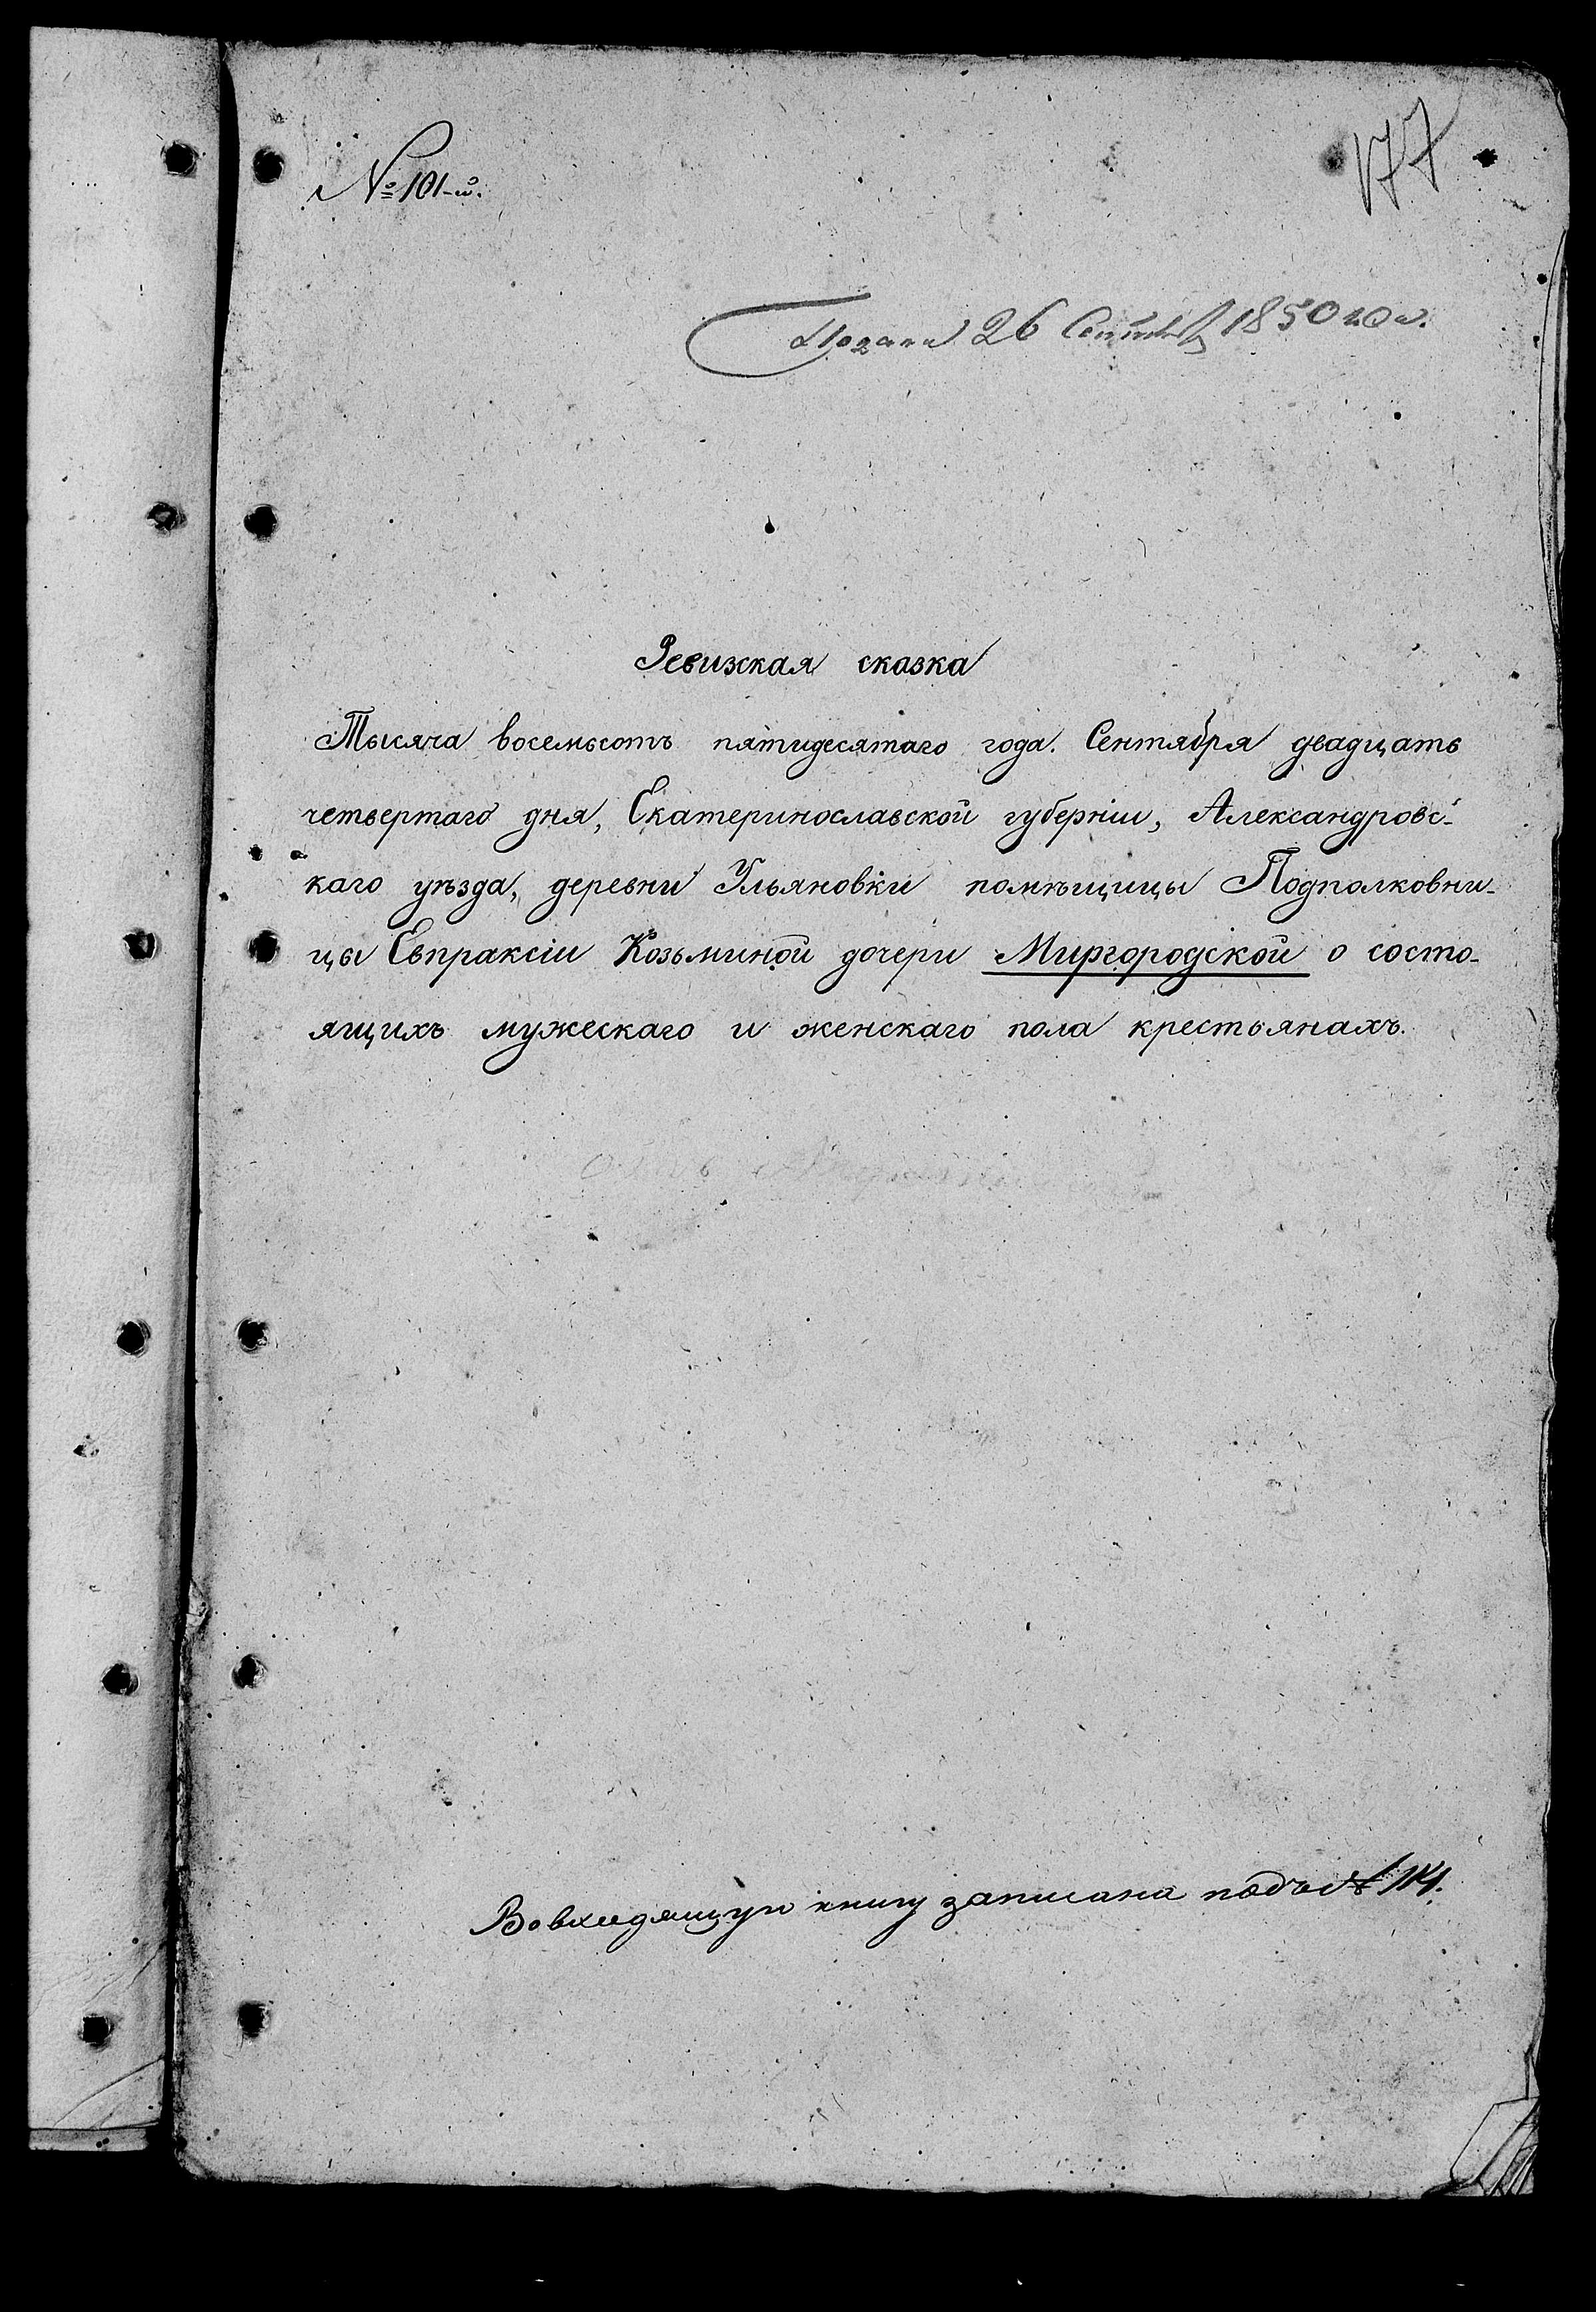 № 101-й.
177
Подана 26 Сентяб 1850 года.
Ревизская сказка
Тысяча восемьсотъ пятидесятаго года. Сентября двадцать
четвертаго дня, Екатеринославской губерніи, Александровс-
каго уѣзда, деревни Ульяновки помѣщицы Подполковни-
цы Евпраксіи Козьминой дочери Миргородской о состо-
ящихъ мужескаго и женскаго пола крестьянахъ.
Во входящую книгу записана подъ № 114.